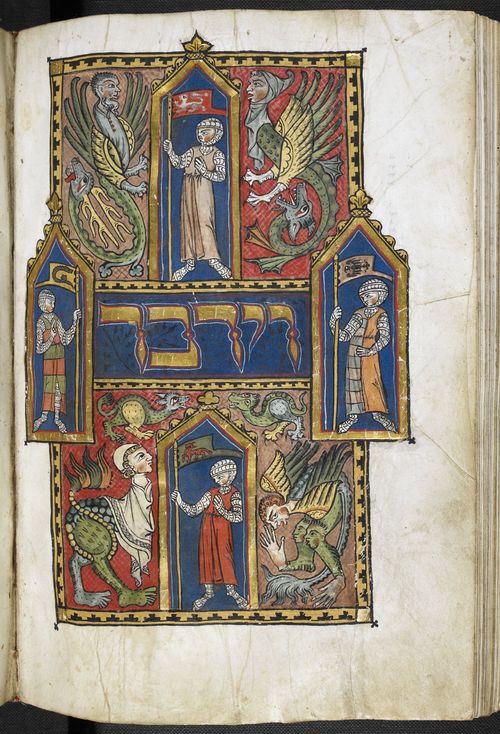 וידבר